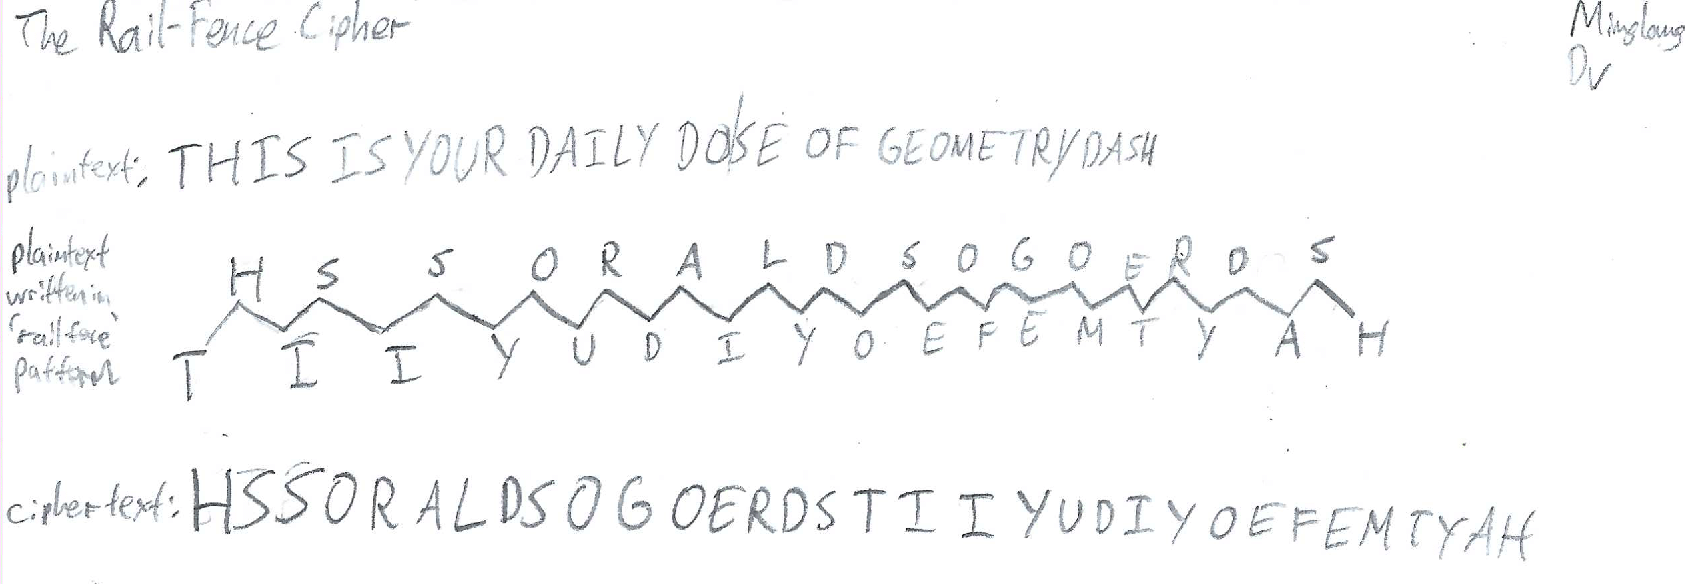 The Rail-Fence Cipher
Minglang
Du
plaintext: THIS IS YOUR DAILY DO SE OF GEOMETRY DASH
plaintext
written in
"rail fece"
pattern
H S S O R A L D S O G O E R D S
T I I Y U D I Y O E F E M T Y A H
ciphertext: HSSORALDSOGOERDSTIIYUDIYOEFEMTYAH